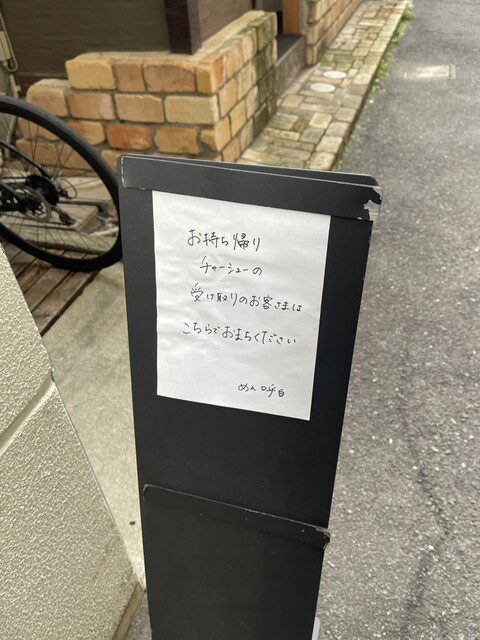 お持ち帰り
チャーシューの
受け取りのお客さまは
こちらでおまちください
めん 呼白